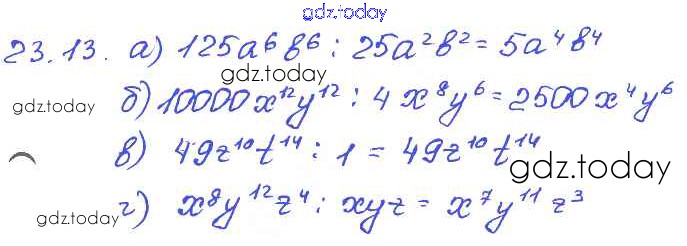 gdz.today
23.13. а) 125a⁶b⁶ : 25a²b² = 5a⁴b⁴
gdz.today
gdz.today б) 10000x¹²y¹² : 4x⁸y⁶ = 2500x⁴y⁶
в) 49z¹⁰t¹⁴ : 1 = 49z¹⁰t¹⁴
gdz.today
gdz.today г) x⁸y¹²z⁴ : xyz = x⁷y¹¹z³